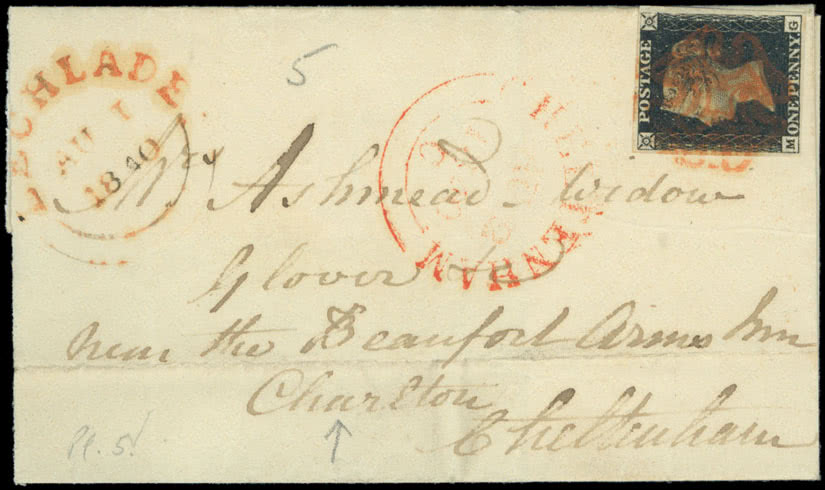 5
LECHLADE
AU 1
1840
POSTAGE
ONE PENNY
M G
CHELTENHAM
Mrs Ashmead – Widow
Glover &c
near the Beaufort Arms Inn
Charlton
Cheltenham
Pl. 5.